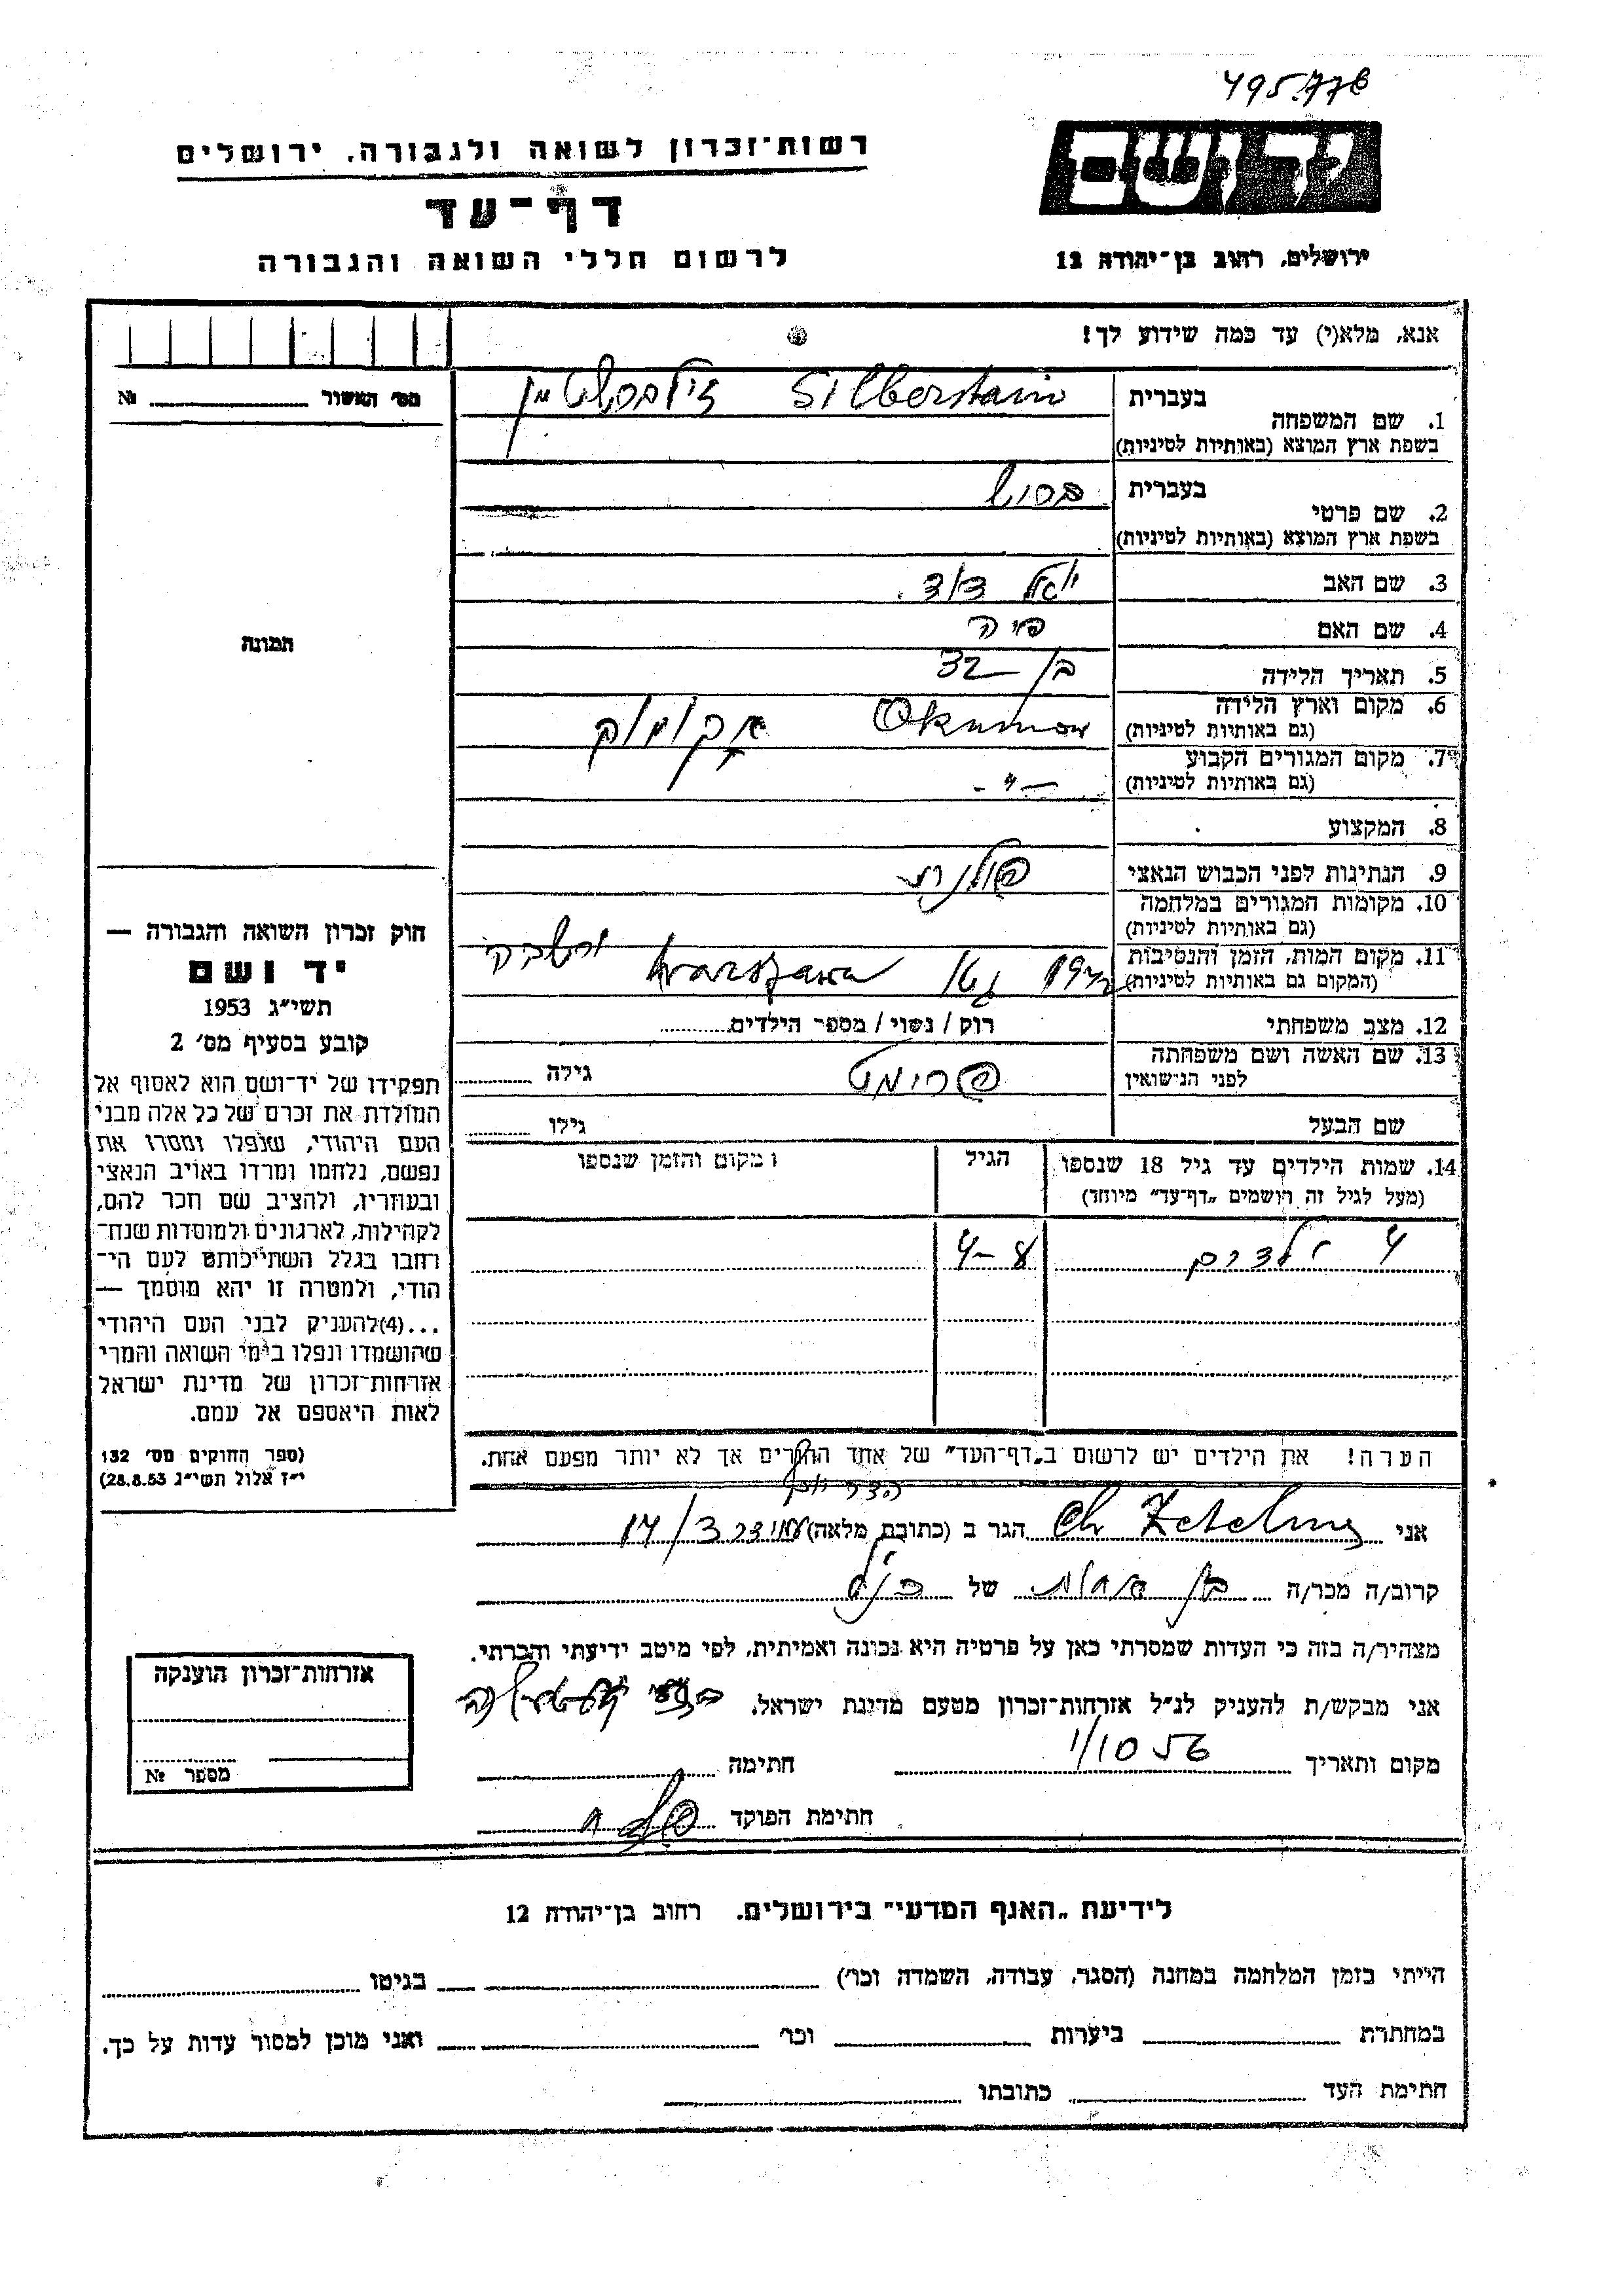 495.778
יד ושם
ירושלים, רחוב בן־יהודה 12
רשות־זכרון לשואה ולגבורה, ירושלים
דף־עד
לרשום חללי השואה והגבורה
אנא, מלא(י) עד כמה שידוע לך!
מס׳ האשור № 
תמונה
1. שם המשפחה בעברית Silberstain זילברשטיין
בשפת ארץ המוצא (באותיות לטיניות)
2. שם פרטי בעברית
בשפת ארץ המוצא (באותיות לטיניות)
3. שם האב יואל דוד
4. שם האם
5. תאריך הלידה בן 32
6. מקום וארץ הלידה
(גם באותיות לטיניות)
7. מקום המגורים הקבוע - " -
(גם באותיות לטיניות)
8. המקצוע
9. הנתינות לפני הכבוש הנאצי פולנית
10. מקומות המגורים במלחמה
(גם באותיות לטיניות)
11. מקום המות, הזמן והנסיבות גטו Warszawa ורשבה
(המקום גם באותיות לטיניות)
12. מצב משפחתי רוק / נשוי / מספר הילדים
13. שם האשה ושם משפחתה פרומט גילה
לפני הנישואין
שם הבעל גילו
14. שמות הילדים עד גיל 18 שנספו הגיל ומקום והזמן שנספו
(מעל לגיל זה רושמים „דף־עד״ מיוחד)
4 ילדים 4-8
הערה! את הילדים יש לרשום ב„דף־העד״ של אחד ההורים אך לא יותר מפעם אחת.
אני הגר ב (כתובת מלאה) 17/3
קרוב/ה מכר/ה בן של הנ"ל
מצהיר/ה בזה כי העדות שמסרתי כאן על פרטיה היא נכונה ואמיתית, לפי מיטב ידיעתי והכרתי.
אני מבקש/ת להעניק לנ״ל אזרחות־זכרון מטעם מדינת ישראל.
מקום ותאריך 1/10 56 חתימה
חתימת הפוקד
חוק זכרון השואה והגבורה —
יד ושם
תשי״ג 1953
קובע בסעיף מס׳ 2
תפקידו של יד־ושם הוא לאסוף אל
המולדת את זכרם של כל אלה מבני
העם היהודי, שנפלו ומסרו את
נפשם, נלחמו ומרדו באויב הנאצי
ובעוזריו, ולהציב שם וזכר להם,
לקהילות, לארגונים ולמוסדות שנח־
רבו בגלל השתייכותם לעם הי־
הודי, ולמטרה זו יהא מוסמך —
...(4)להעניק לבני העם היהודי
שהושמדו ונפלו בימי השואה והמרי
אזרחות־זכרון של מדינת ישראל
לאות היאספם אל עמם.
(ספר החוקים מס׳ 132
י״ז אלול תשי״ג 28.8.53)
אזרחות־זכרון הוענקה
מספר №
לידיעת „האגף המדעי״ בירושלים. רחוב בן־יהודה 12
הייתי בזמן המלחמה במחנה (הסגר, עבודה, השמדה וכו׳) בגיטו
במחתרת ביערות וכו׳ ואני מוכן למסור עדות על כך.
חתימת העד כתובתו